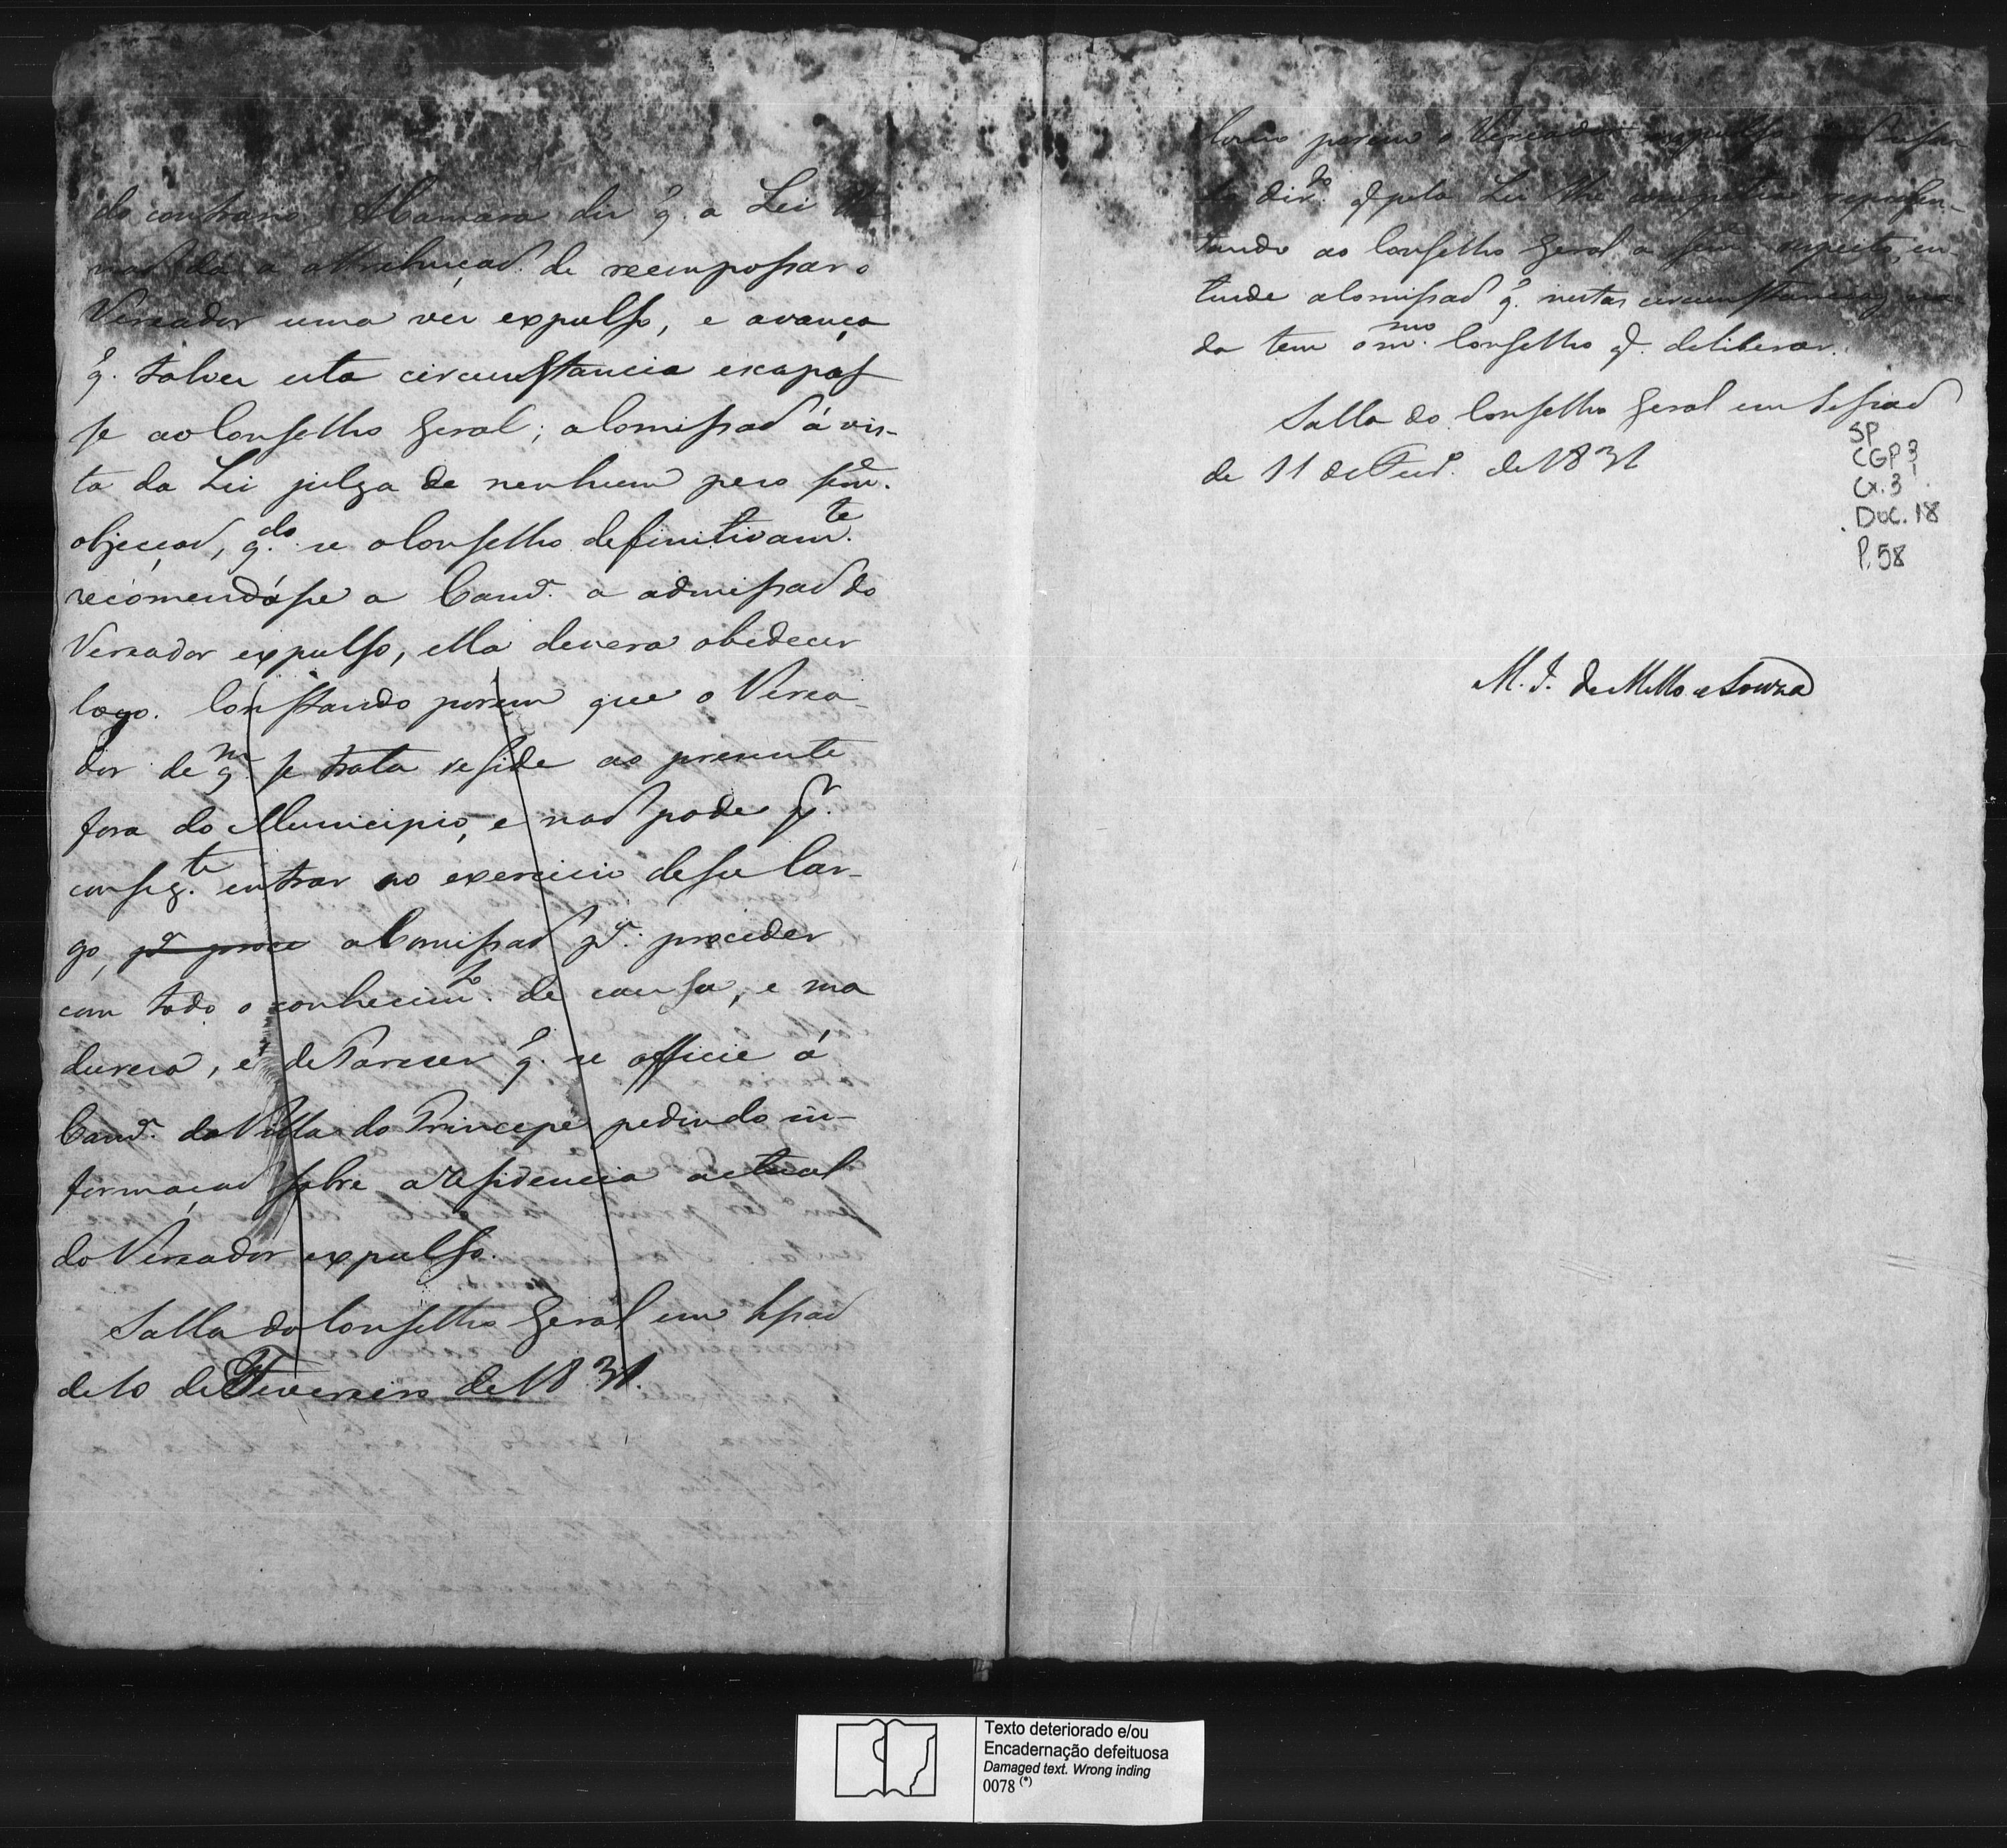 do contrario, A Camara diz q. a Lei
naõ dá a attribuiçaõ de reempossar o
Vereador uma vez expulso, e avança
q. talvez esta circunstancia escapas
se ao Conselho Geral; a Comissaõ á vis-
ta da Lei julga de nenhum pezo sem.e
objecçaõ, q.do se o Conselho definitivam.te
recomendásse a Cam.ª a admissaõ do
Vereador expulso, ella devera obedecer
logo. Constando porem que o Verea-
dor de q.m se trata reside ao presente
fora do Municipio, e naõ pode p.r
conseg.te entrar no exercicio de seu Car-
go, p.ª proce a Comissaõ p.ª proceder
com todo o conhecim.to de causa, e ma
dureza, é de Parecer q. se officie á
Cam.ª da Villa do Principe pedindo in-
formaçaõ sobre a residencia actual
do Vereador expulso.
Salla do Conselho Geral em Sessaõ
de 10 de Fevereiro de 1831.
porem o Vereador
dir.to q pela Lei lhe competia represen-
tando ao Conselho Geral a respeito, en-
tende a Comissaõ q. nestas circunstancias na
da tem o m.mo Conselho q. deliberar.
Salla do Conselho Geral em Sessaõ
de 11 de Fev.º de 1831
SP
CGP 3
Cx. 3
Doc. 18
P. 58
M. J. de Mello e Souza
Texto deteriorado e/ou
Encadernação defeituosa
Damaged text. Wrong inding
0078 (*)